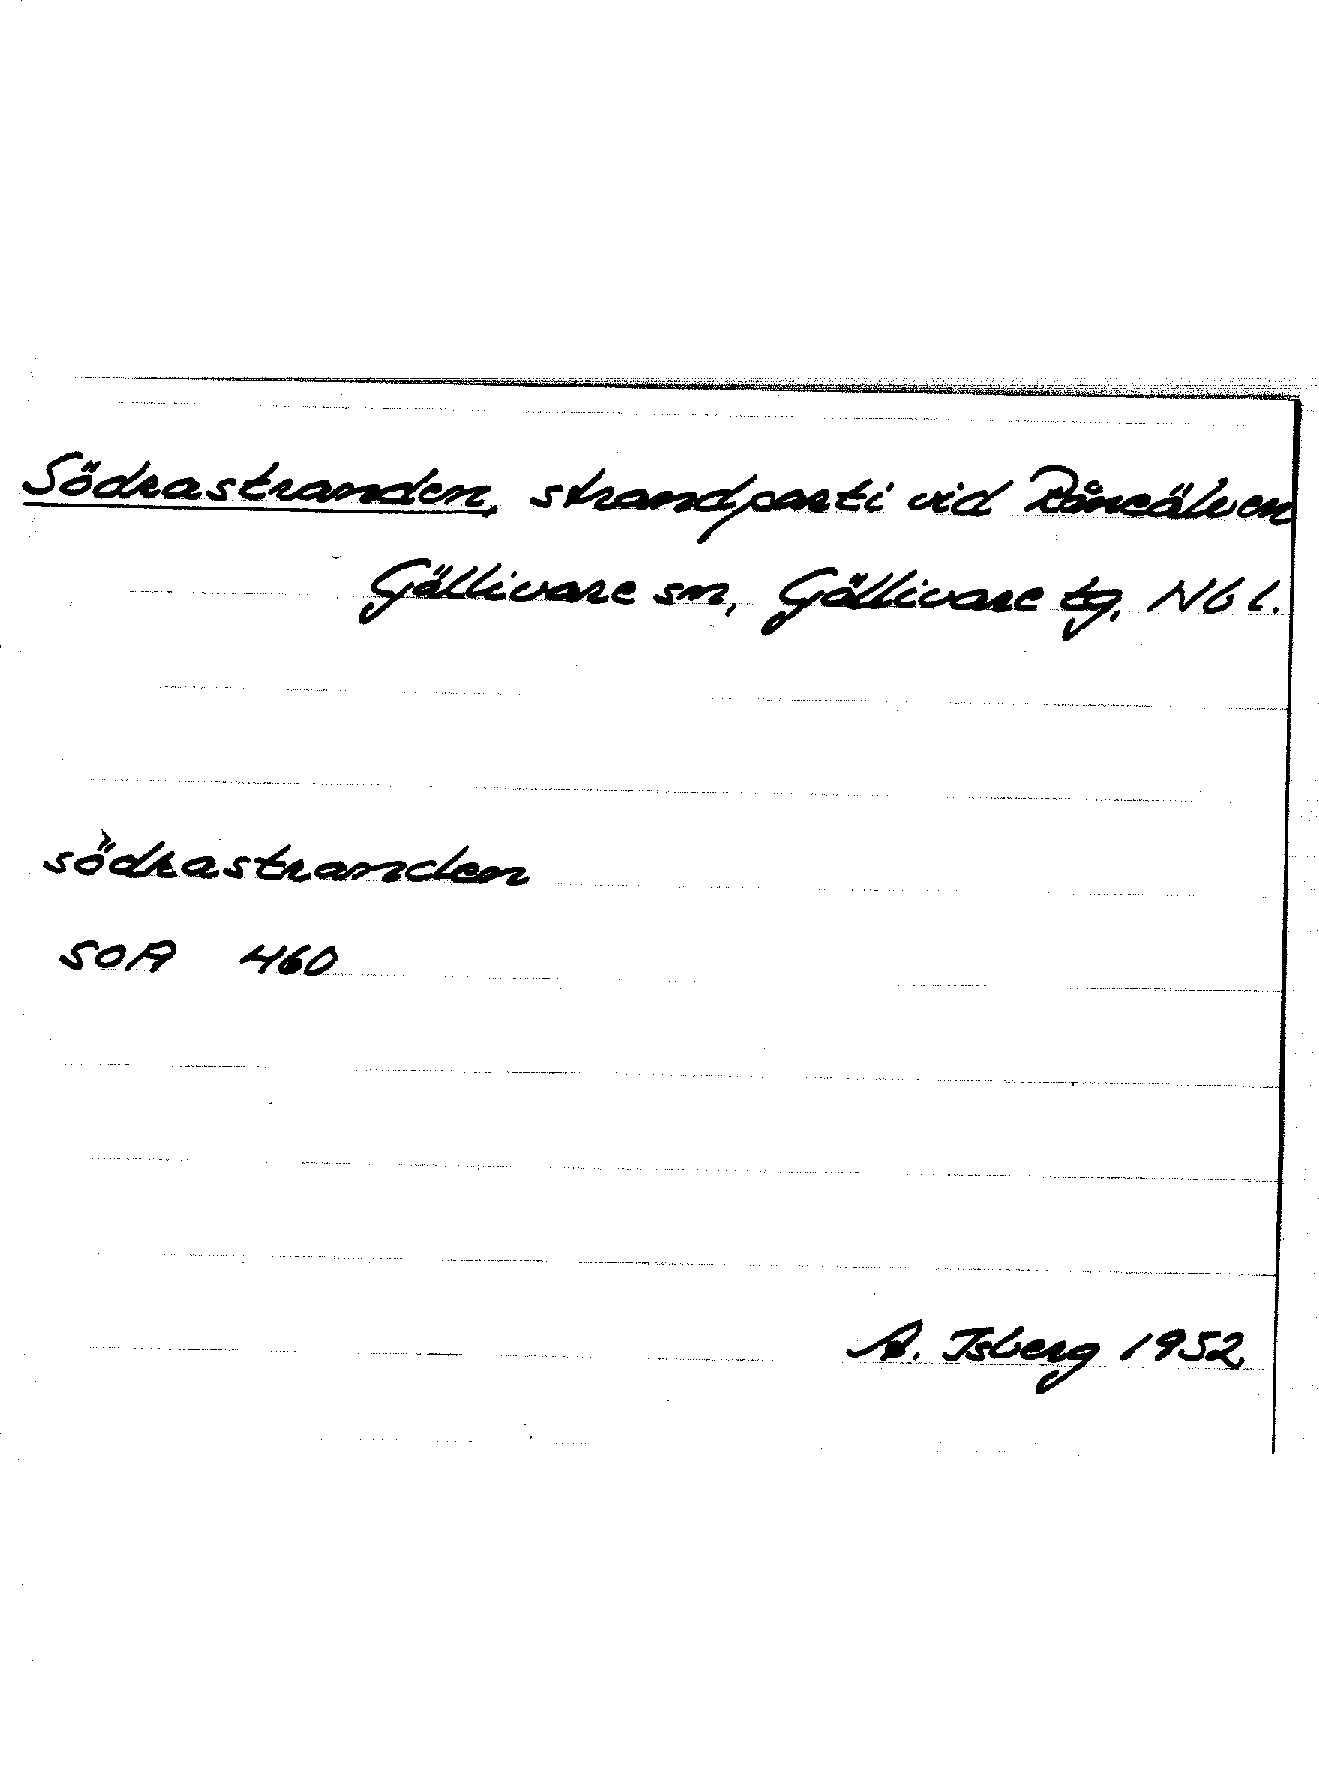 Södrastranden, strandparti vid Råneälven
Gällivare sn, Gällivare tg, Nb l.
södrastranden
SOA 460
A. Isberg 1952